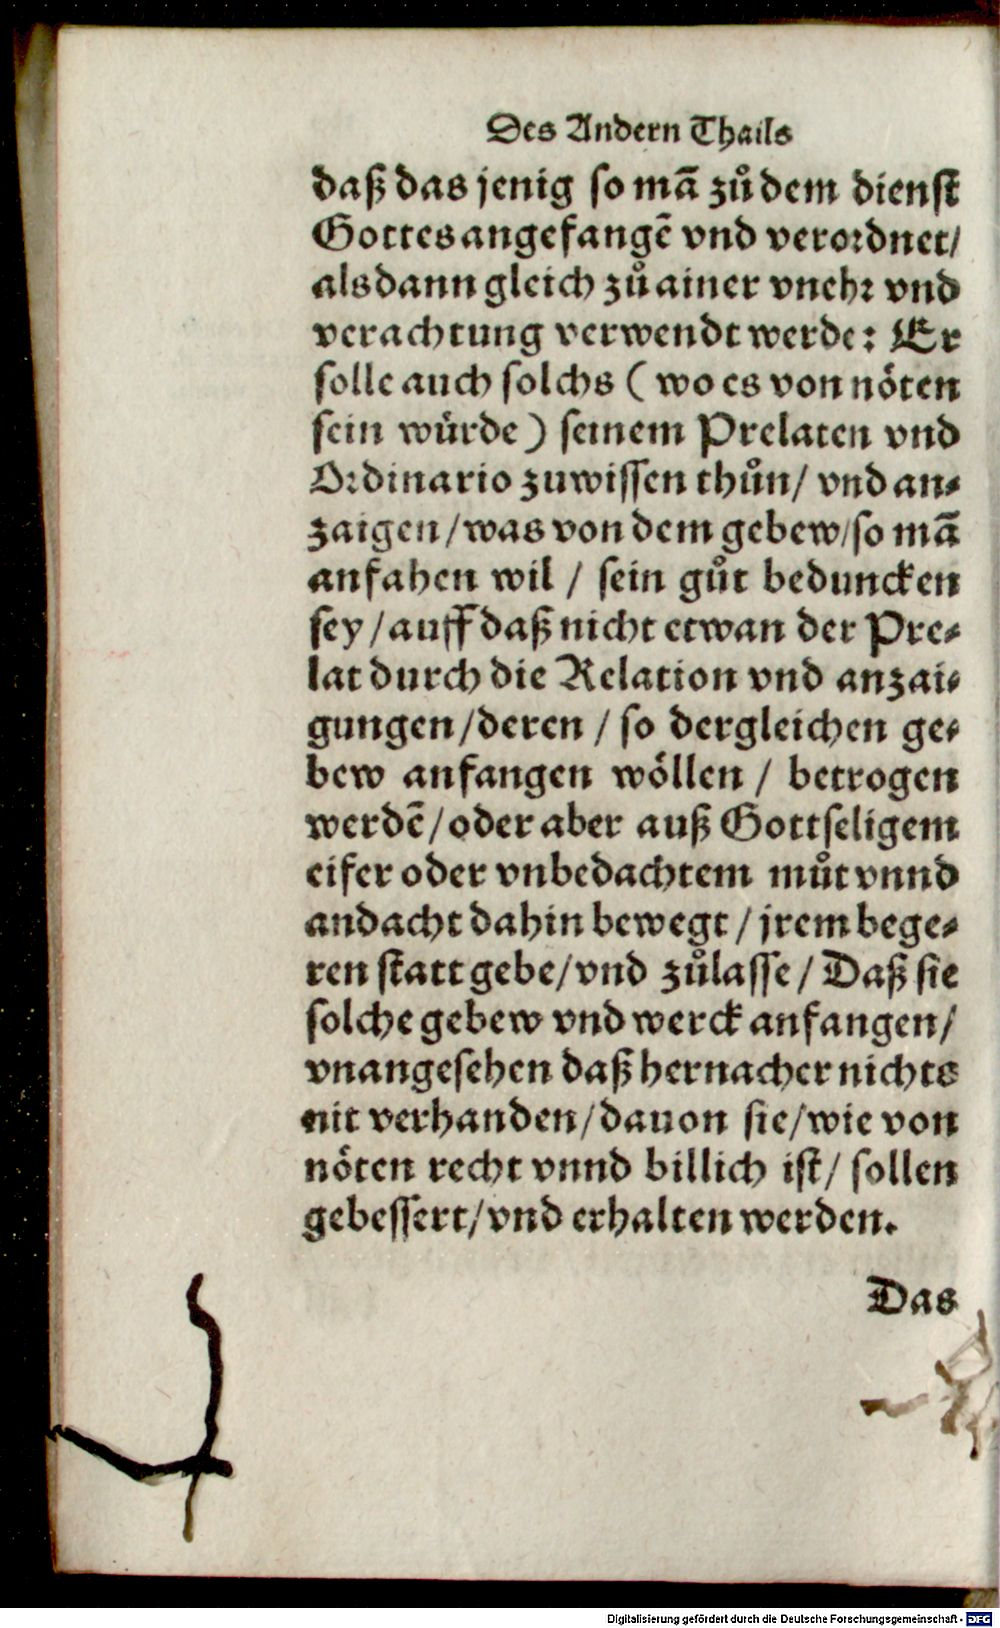 Des Andern Thails
daß das jenig so mā zů dem dienst
Gottes angefangē vnd verordnet/
alsdann gleich zů ainer vnehr vnd
verachtung verwendt werde: Er
solle auch solchs ( wo es von nöten
sein würde ) seinem Prelaten vnd
Ordinario zuwissen thůn/ vnd an-
zaigen/was von dem gebew/so mā
anfahen wil / sein gůt beduncken
sey/auff daß nicht etwan der Pre-
lat durch die Relation vnd anzai-
gungen/deren / so dergleichen ge-
bew anfangen wöllen / betrogen
werdē/oder aber auß Gottseligem
eifer oder vnbedachtem můt vnnd
andacht dahin bewegt / jrem bege-
ren statt gebe/vnd zůlasse / Daß sie
solche gebew vnd werck anfangen/
vnangesehen daß hernacher nichts
nit verhanden/dauon sie/wie von
nöten recht vnnd billich ist/ sollen
gebessert/vnd erhalten werden.
Das
Digitalisierung gefördert durch die Deutsche Forschungsgemeinschaft - DFG